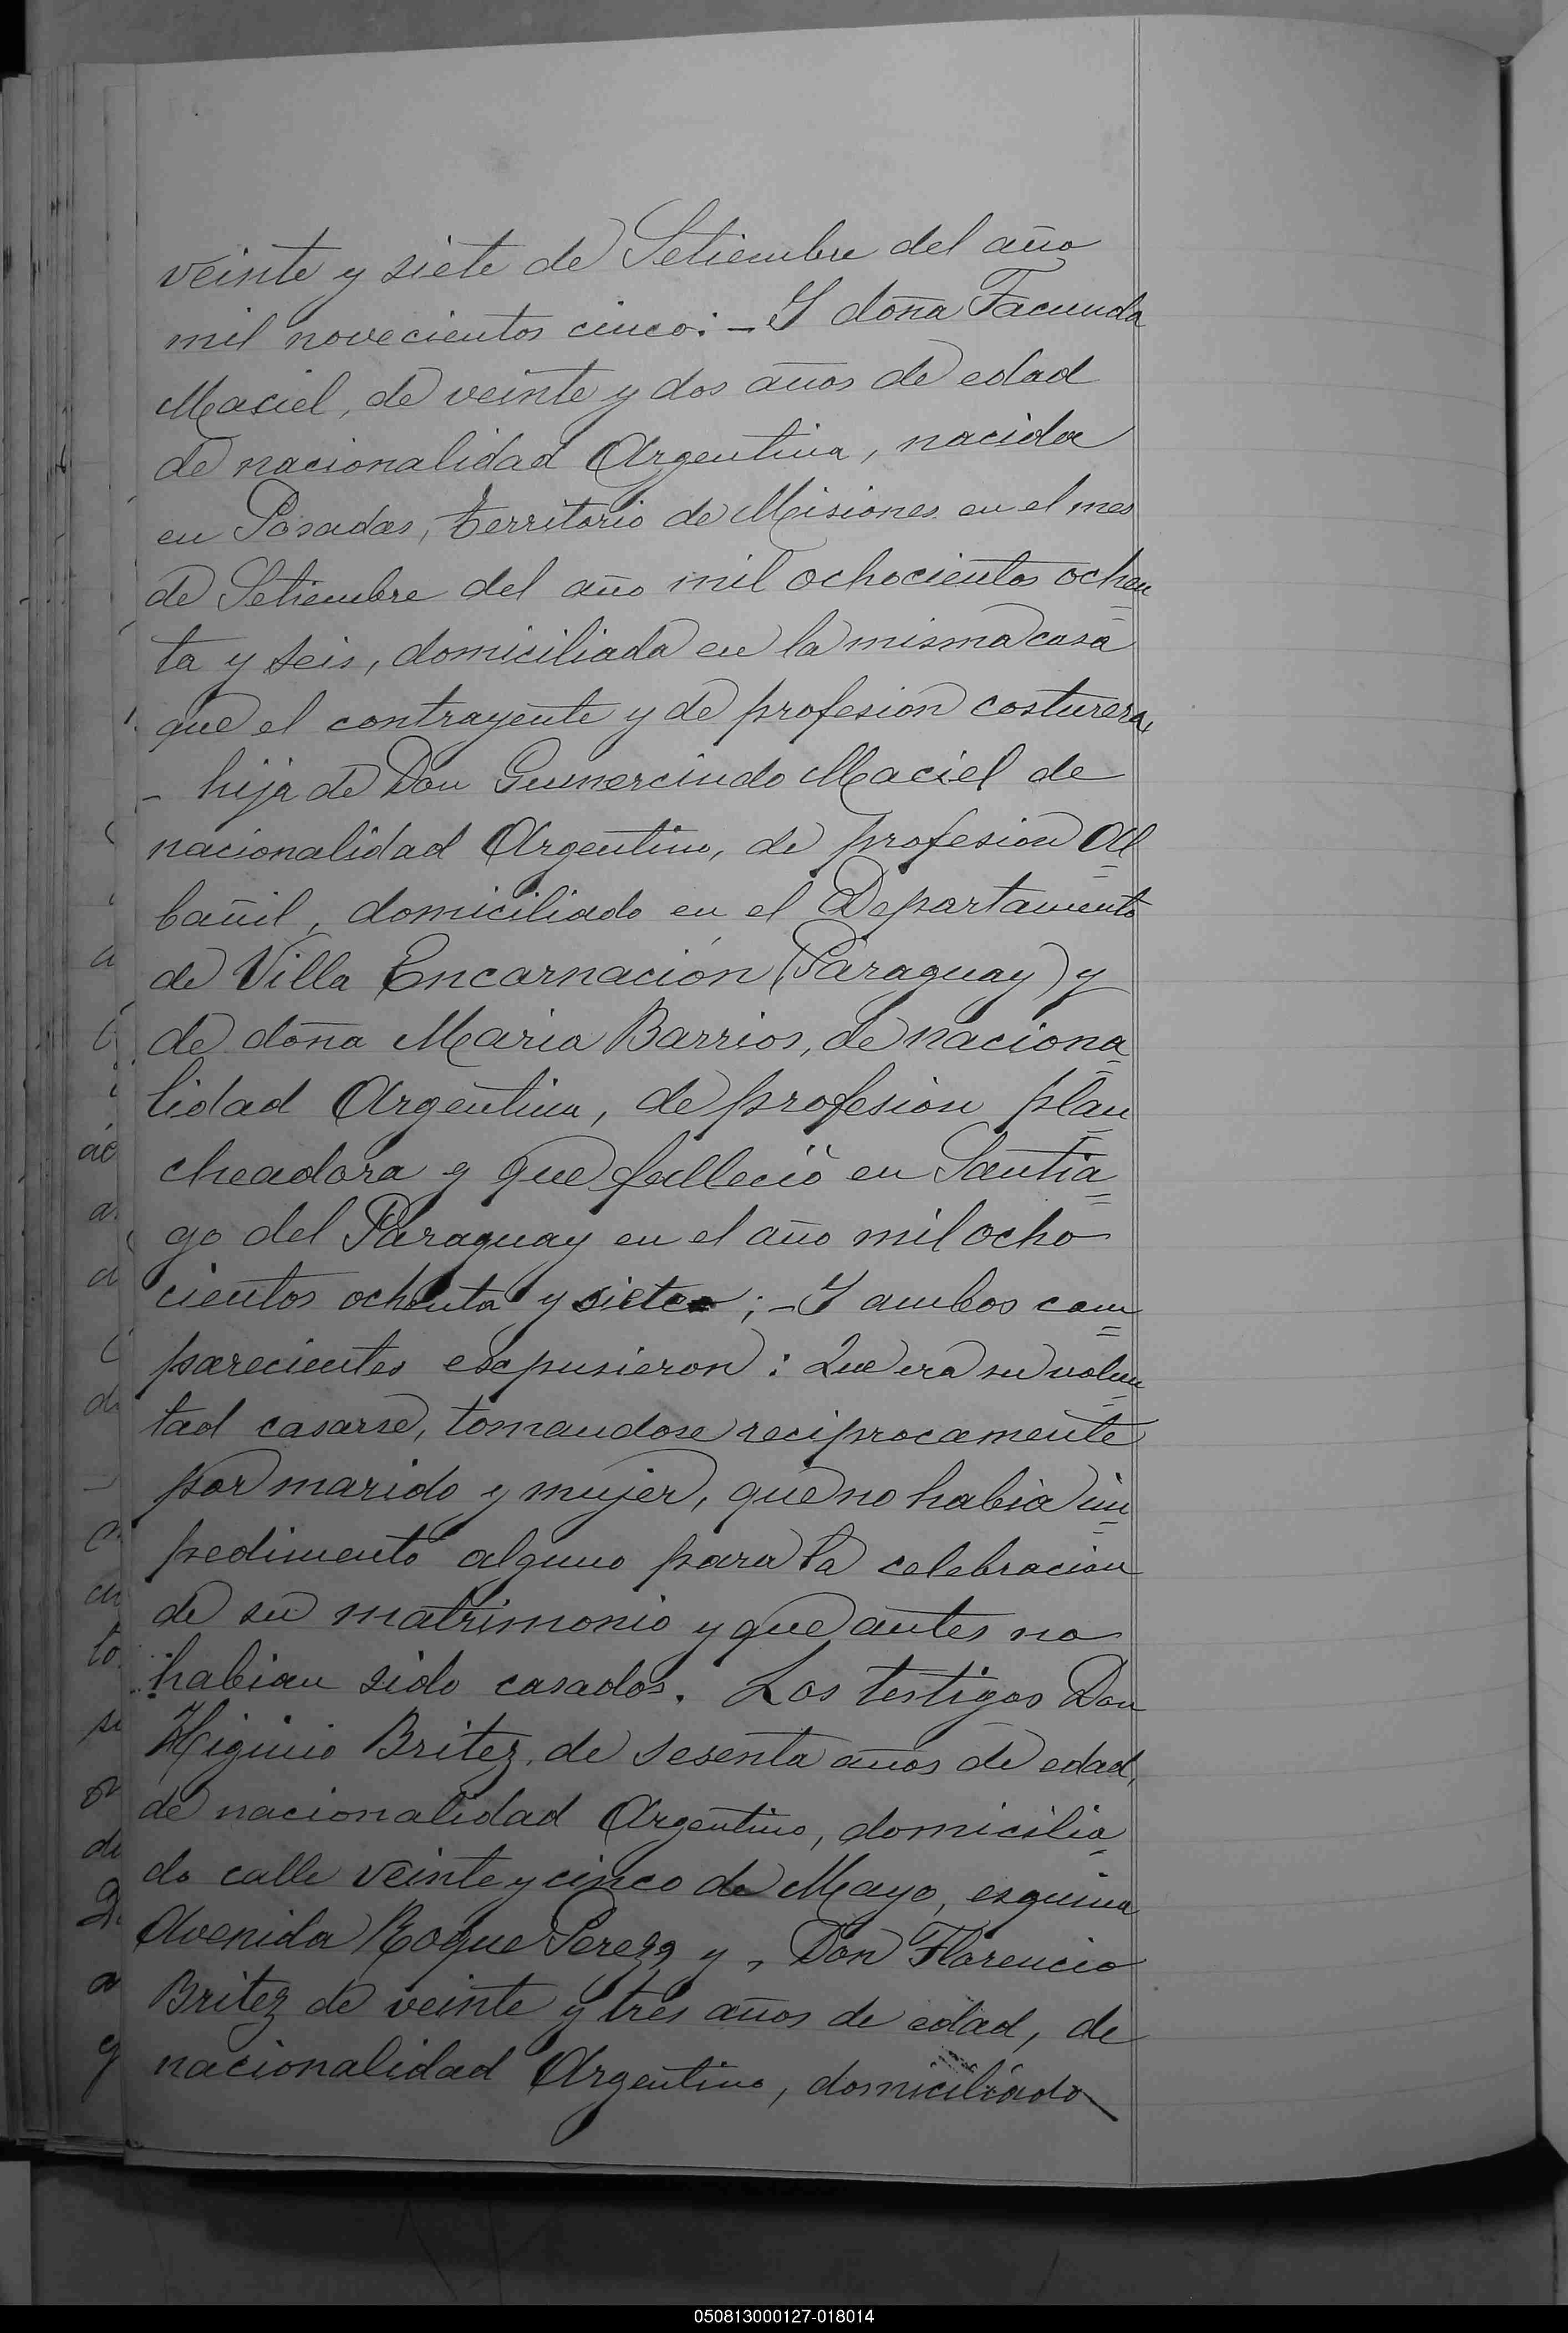 veinte y siete de Setiembre del año
mil novecientos cinco: - Y doña Facunda
Maciel, de veinte y dos años de edad
de nacionalidad Argentina, nacida
en Posadas, territorio de Misiones en el mes
de Setiembre del año mil ochocientos ochen
ta y seis, domiciliada en la misma casa
que el contrayente y de profesion costurera,
- hija de Don Gumercindo Maciel de
nacionalidad Argentino, de profesion Al
bañil, domiciliado en el Departamento
de Villa Encarnación (Paraguay) y
de doña Maria Barrios, de naciona
lidad Argentina, de profesion plan
cheadora y que falleció en Santia
go del Paraguay en el año mil ocho
cientos ochenta y siete; - Y ambos com
parecientes expusieron: Que era su volun
tad casarse, tomandose reciprocamente
por marido y mujer, que no habia im
pedimento alguno para la celebracion
de su matrimonio y que antes no
habian sido casados. Los testigos Don
Higinio Britez, de sesenta años de edad,
de nacionalidad Argentino, domicilia
do calle veinte y cinco de Mayo, esquina
Avenida Roque Perez, y, Don Florencio
Britez de veinte y tres años de edad, de
nacionalidad Argentino, domiciliado
050813000127-018014